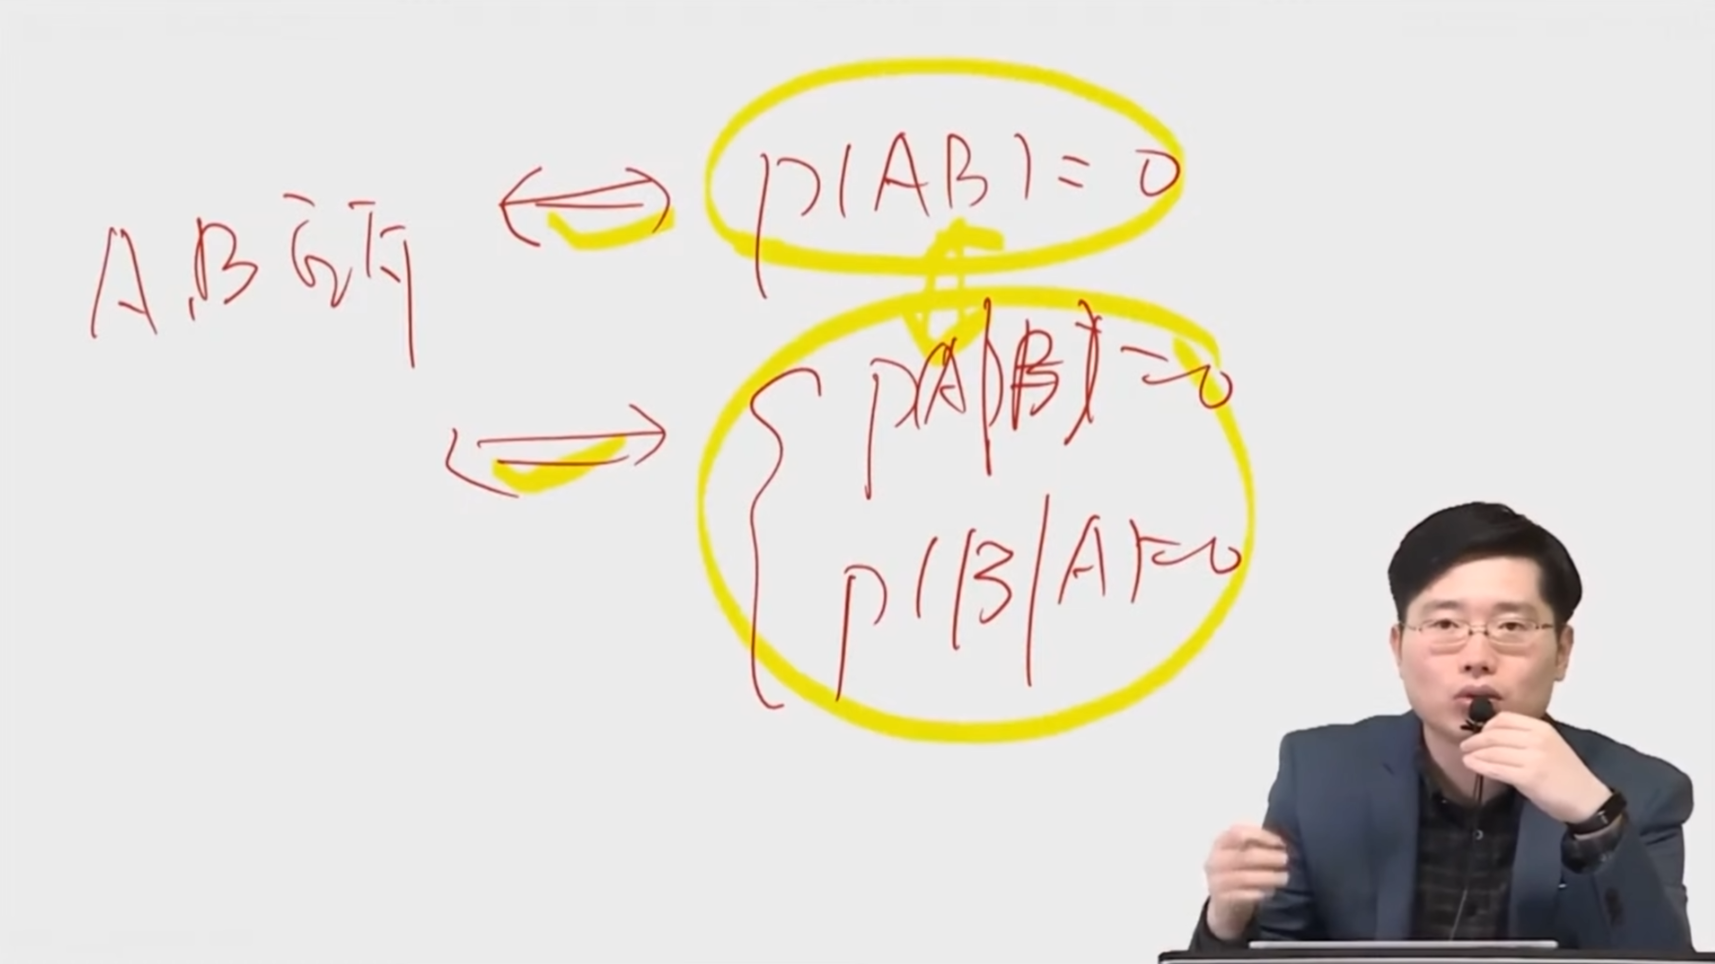 A,B互斥 ⟺ P(AB)=0
⟺ { P(A|B)=0
P(B|A)=0